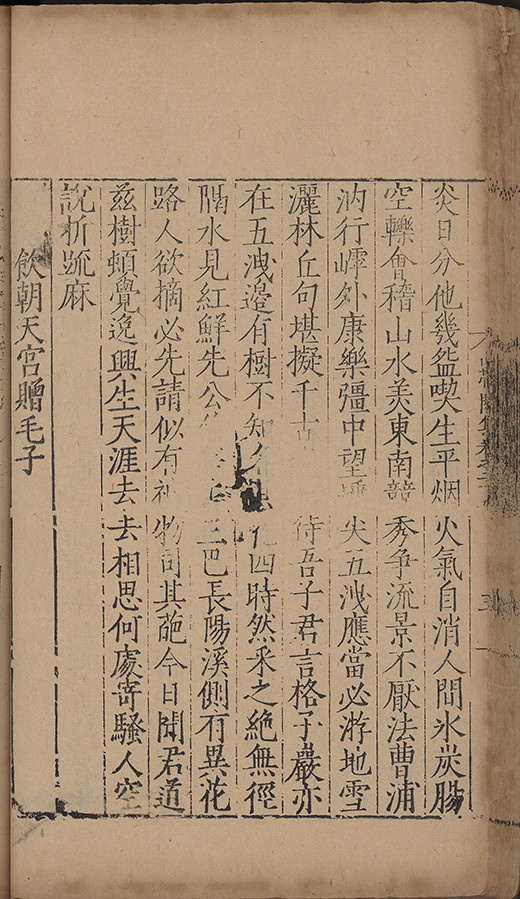 炎日分他幾盌喫生平烟火氣自消人間氷炭腸
空轢會稽山水美東南秀争流景不厭法曹浦
汭行嶂外康樂疆中望尖五洩應當必游地雪
灑林丘句堪擬千古待吾子君言格子嚴亦
在五洩邊有樹不知四時然釆之絶無徑
隔水見紅鮮先公三巴長陽溪側有異花
路人欲摘必先請似有神物司其葩今日聞君道
兹樹頓覺逸興生天涯去去相思何處寄騷人空
說折䟽麻
飲朝天宫贈毛子
三